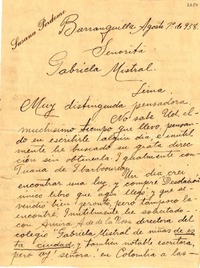 Susana Perdomo
Barranquilla, Agosto 1º de 938.
Señorita
Gabriela Mistral.
Lima.
Muy distinguida pensadora,
No sabe Ud. el
muchísimo tiempo que llevo, pensan-
do en escribirle algún día, e inútil-
mente he buscado su grata direc-
ción sin obtenerla. Igualmente con
Juana de Ibarbourou.
Un día, creí
encontrar una luz y compré Desolación
único libro que acá llegó y que se
vendió bien pronto, pero tampoco la
encontré. Inútilmente he
con directora del
colegio Gabriela Mistral de niñas de es-
ta ciudad, y también notable escritora,
pero ay! señora, en Colombia a las